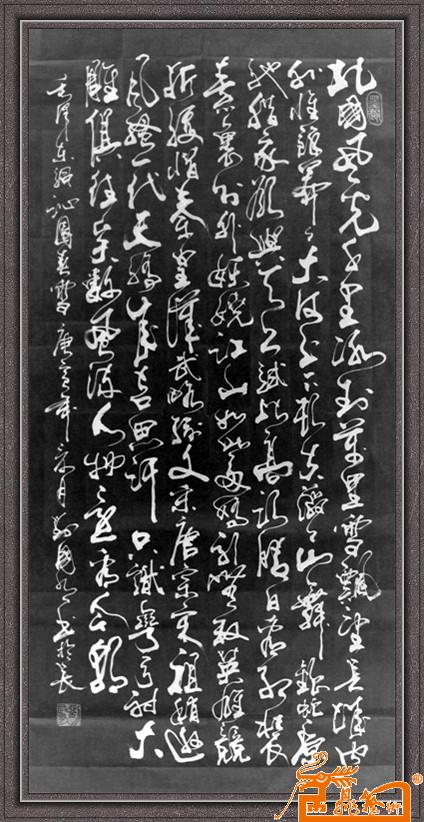 北國風光千里冰封萬里雪飄望長城內
外惟餘莽莽大河上下頓失滔滔山舞銀蛇原
馳腊象欲與天公試比高須晴日看紅裝
素裹分外妖嬈江山如此多嬌引無數英雄競
折腰惜秦皇漢武略輸文采唐宗宋祖稍遜
風騷一代天驕成吉思汗只識彎弓射大
雕俱往矣數風流人物還看今朝
毛澤東詞沁園春雪庚寅年月書於長